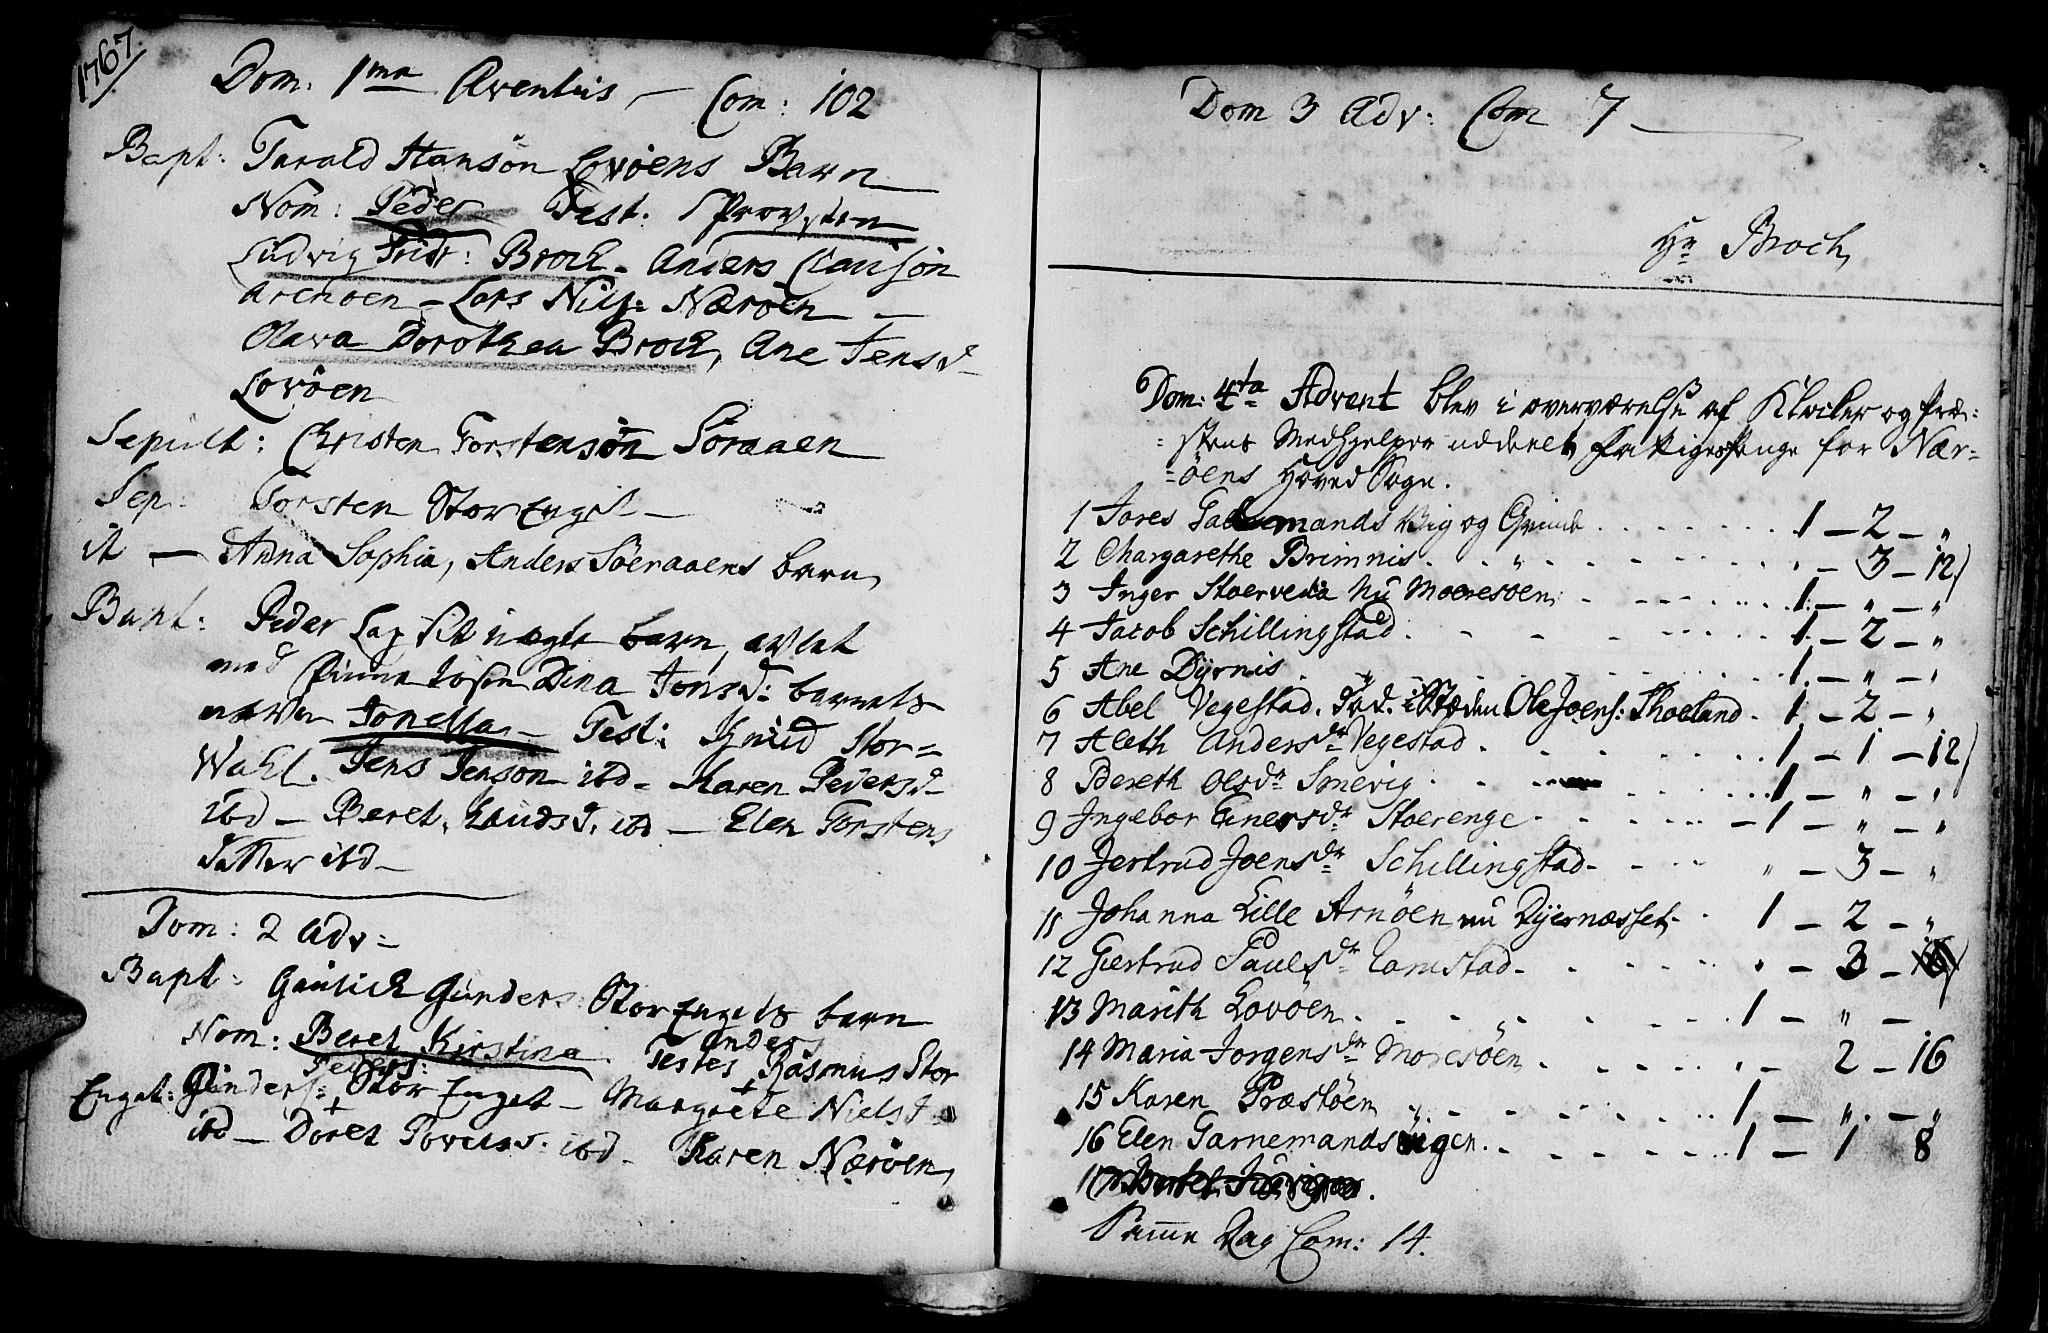 1767.
Dom: 1ma Aventus, — Com: 102
Bapt: Tarald Hansön Lovöens Barn
Nom: Peder Test. Provsten
Ludvig Fridr: Broch – Anders Clausön
Arenöen – Lars Nils: Næröen –
Olava Dorothea Broch, Ane Jensd
Lovöen
Sepult: Christen Torstensön Söraaen
Sep: Torsten StorEngel –
it — Anna Sophia, Anders Söeraaens barn,
Bapt: Peder Lap sit uægte barn, avlet
med Dina Jonsd: barnets
navn Jonella – Test: Knud Stor=
Wahl. Jens Jenson ibd – Karen Pedersd
ibd – Beret Knudsd. ibd – Elen Torstens
datter ibd –
Dom: 2 Adv =
Bapt: Gunders: StorEngets barn
Nom: Beret Kirstina. Testes Anders Rasmus Stor
Enget: Peders: Gunders: StorEnget – Margrete Nielsd
ibd – Doret ibd – Karen Næröen,
Dom 3 Adv: Com 7
Hr Broch,
Dom: 4ta Advent blev i overværelse af Klocker og Præ=
=stens Medhjelpere uddeelt Fattigespenge for Nær=
=öens Hoved Sogn.
1 Jores Garnemands Vig og . . . 1 – 2 – "
2 Margarethe Brimnis . . . " – 3 – 12
3 Inger Stoerveda nu Moeresöen . . . 1 – " – "
4 Jacob Schillingstad . . . 1 – 2 – "
5 Ane Dyrnis . . . 1 – " – "
6 Abel Vegestad. Död. i Stæden Ole Joens: Thoeland . 1 – 2 – "
7 Aleth Andersdr Vegestad . . . 1 – 1 – 12
8 Bereth Olsdr Smevig . . . 1 – " – "
9 Ingebor Einersdr Stoerenge . . . 1 – " – "
10 Jertrud Joensdr Schillingstad . . . " – 3 – "
11 Johanna Lille Arnöen nu Dyernæsset . . 1 – 2 – "
12 Giertrud Paulsdr Ramstad . . . " – 3 –
13 Marith Lovöen . . . 1 – " – "
14 Maria Jorgensdr Moresöen . . . " – 2 – 16
15 Karen Præstöen . . . 1 – " – "
16 Elen Garnemandsvigen . . . 1 – 1 8
17
Samme Dag Com: 14.